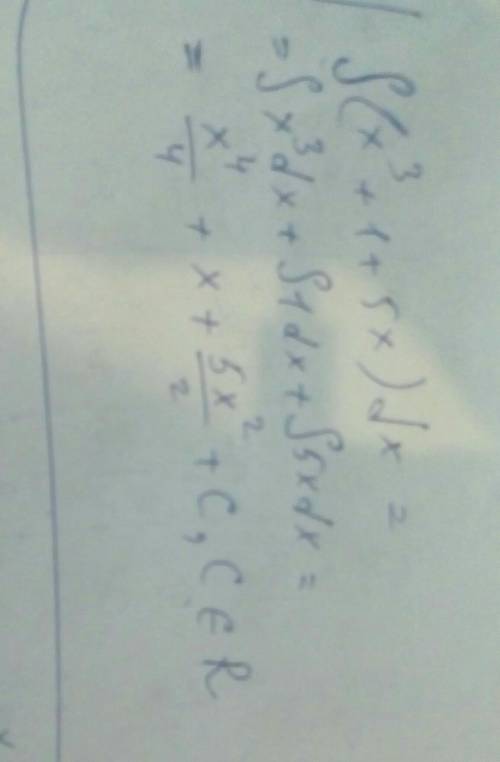 ∫(x³ + 1 + 5x)dx =
= ∫x³dx + ∫1dx + ∫5xdx =
= x⁴/4 + x + 5x²/2 + C, C ∈ R